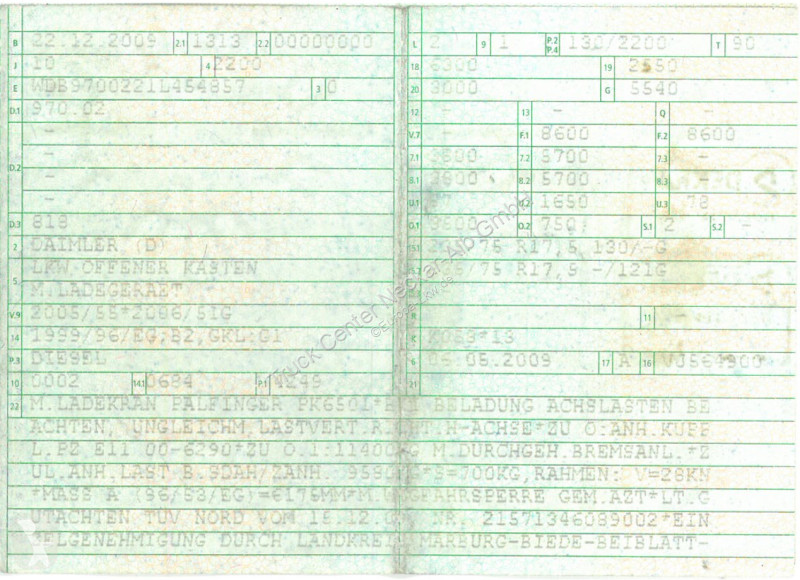 B 22.12.2009 2.1 1313 2.2 00000000
J 10 4 2200
E WDB9700221L454857 3 0
D.1 970.02
-
D.2 -
-
-
D.3 818
2 DAIMLER (D)
5 LKW OFFENER KASTEN
M.LADEGERAET
V.9 2005/55*2006/51G
14 1999/96/EG;B2,GKL:G1
P.3 DIESEL
10 0002 14.1 0684 P.1 4249
L 2 9 1 P.2 P.4 130/2200 T 90
18 6300 19 2550
20 3000 G 5540
12 - 13 - Q -
V.7 - F.1 8600 F.2 8600
7.1 3800 7.2 5700 7.3 -
8.1 3800 8.2 5700 8.3 -
U.1 U.2 1650 U.3 78
O.1 O.2 750 S.1 2 S.2 -
15.1 /75 R17,5 130/-G
/75 R17,5 -/121G
R 11
K 13
6 05.05.2009 17 A 16 VU564900
21
22 M.LADEKRAN PALFINGER BELADUNG ACHSLASTEN BE
ACHTEN, UNGLEICHM.LASTVERT. H-ACHSE*ZU O:ANH.KUPP
L.PZ E11 00-6290*ZU O.1:11400 M.DURCHGEH.BREMSANL.*Z
UL.ANH.LAST B.SDAH/ZANH RAHMEN: V=28KN
*MASS A (96/53/EG)=6176MM*M.WEGFAHRSPERRE GEM.AZT*LT.G
UTACHTEN TÜV NORD VOM NR. 21571346089002*EIN
ZELGENEHMIGUNG DURCH LANDKREIS MARBURG-BIEDE-BEIBLATT-
Truck Center Neckar-Alb GmbH
©Europe-LKW.de